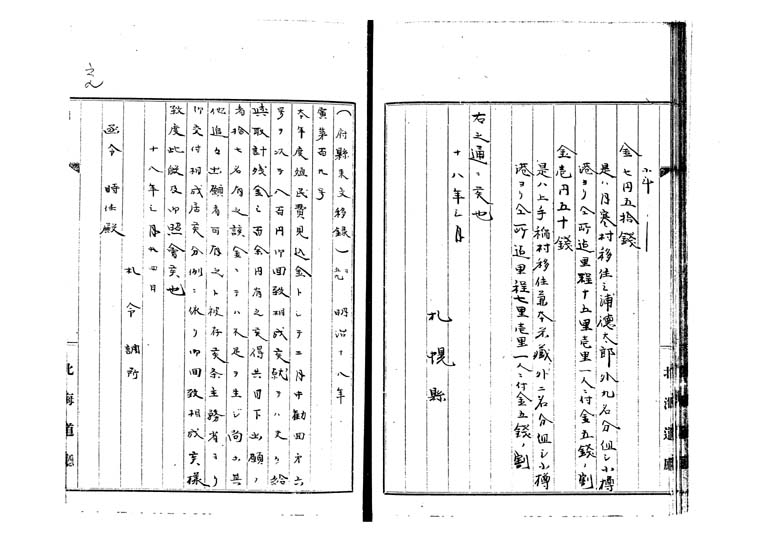 金七円五拾錢
是ハ月寒村移住三浦德太郎外九名分但シ小樽
港ヨリ仝所迄里程十五里壱里一人ニ付金五錢ノ割
金壱円五十錢
是ハ上手稲村移住兼本米藏外二名分但シ小樽
港ヨリ仝所迄里程七里壱里一人ニ付金五錢ノ割
右之通ニ候也
十八年三月
札幌縣
北海道廳
(府縣來文移録) 明治十八年
第百九号
本年度殖民費見込金トシテ二月中勸回第六
号ヲ以テ八百円御回致相成候就テハ夫々給
與取計残金三百余円有之候得共目下出願ノ
者拾七名有之該金ニテハ不足ヲ生シ尚ホ其
他追々出願者可有之ト被存候条主務省ヨリ
御交付相成居候分例ニ依リ御回致相成候様
致度此段及御照會候也
十八年三月廿四日
札令 調所
函令 時任殿
北海道廳